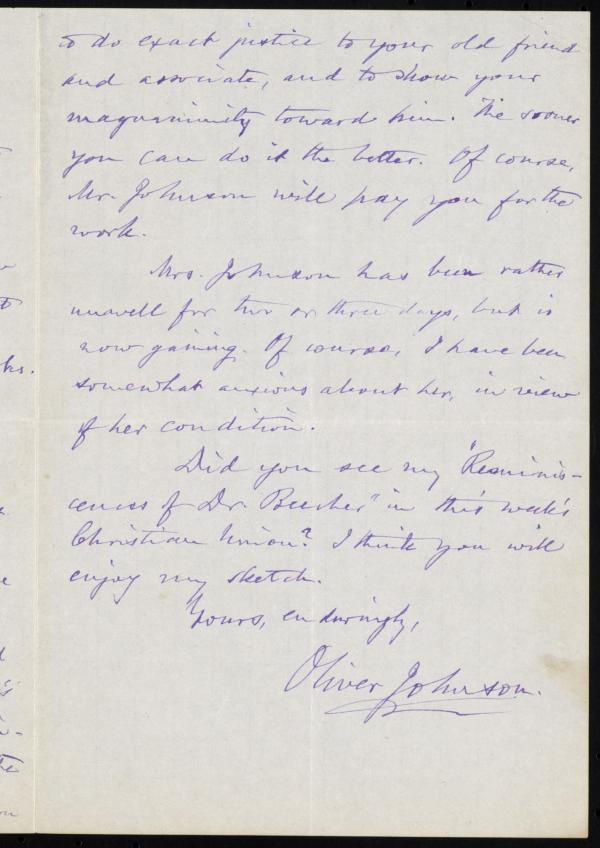 to do exact justice to your old friend
and associate, and to show your
magnanimity toward him. The sooner
you can do it the better. Of course,
Mr. Johnson will pay you for the
work.
Mrs. Johnson has been rather
unwell for two or three days, but is
now gaining. Of course, I have been
somewhat anxious about her, in view
of her condition.
Did you see my "Reminis-
cences of Dr. Beecher" in this week's
Christian Union? I think you will
enjoy my sketch.
Yours, enduringly,
Oliver Johnson.